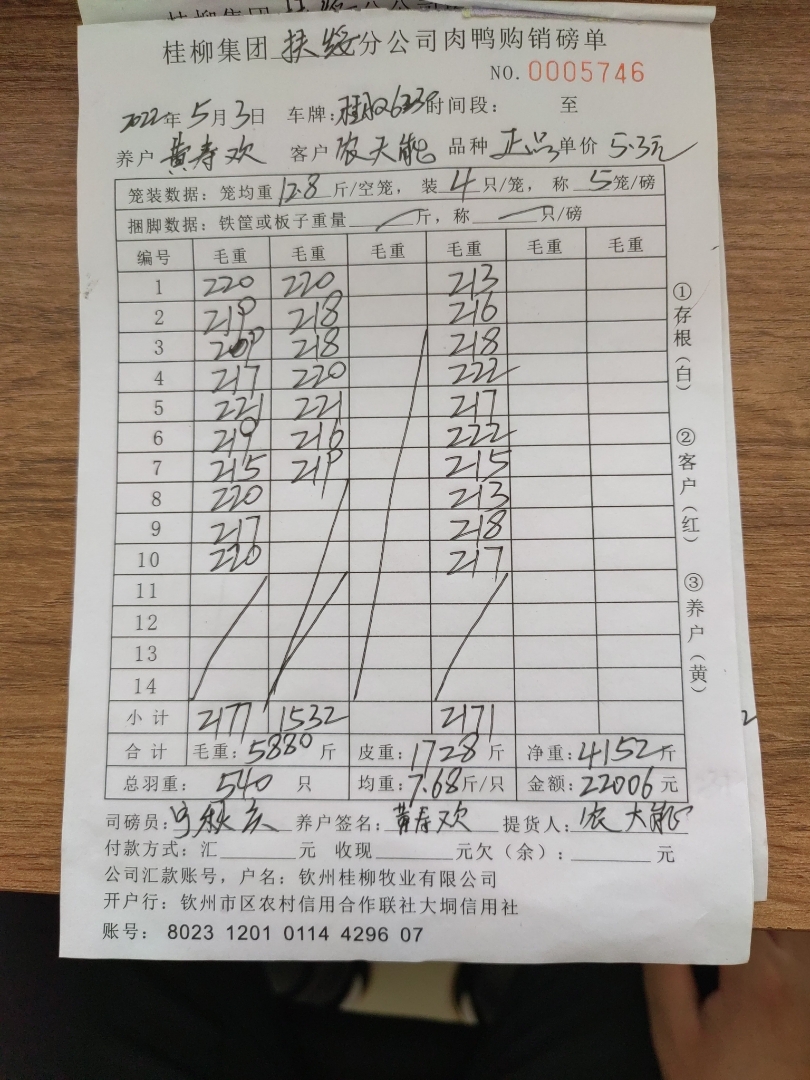 桂柳集团扶绥分公司肉鸭购销磅单
NO. 0005746
2022年5月3日 车牌: 时间段: 至
养户 黄寿欢 客户 农天能 品种 正品 单价 5.3元
笼装数据: 笼均重 12.8 斤/空笼, 装 4 只/笼, 称 5 笼/磅
捆脚数据: 铁筐或板子重量 斤, 称 只/磅
编号 毛重 毛重 毛重 毛重 毛重 毛重
1 220 220 213
2 219 218 216
3 209 218 218
4 217 220 222
5 221 221 217
6 219 216 222
7 215 219 215
8 220 213
9 217 218
10 220 217
11
12
13
14
小计 2177 1532 2171
合计 毛重: 5880 斤 皮重: 1728 斤 净重: 4152 斤
总羽重: 540 只 均重: 7.68 斤/只 金额: 22006 元
司磅员: 养户签名: 黄寿欢 提货人: 农天能
付款方式: 汇 元 收现 元欠(余): 元
公司汇款账号, 户名: 钦州桂柳牧业有限公司
开户行: 钦州市区农村信用合作联社大垌信用社
账号: 8023 1201 0114 4296 07
①存根(白) ②客户(红) ③养户(黄)